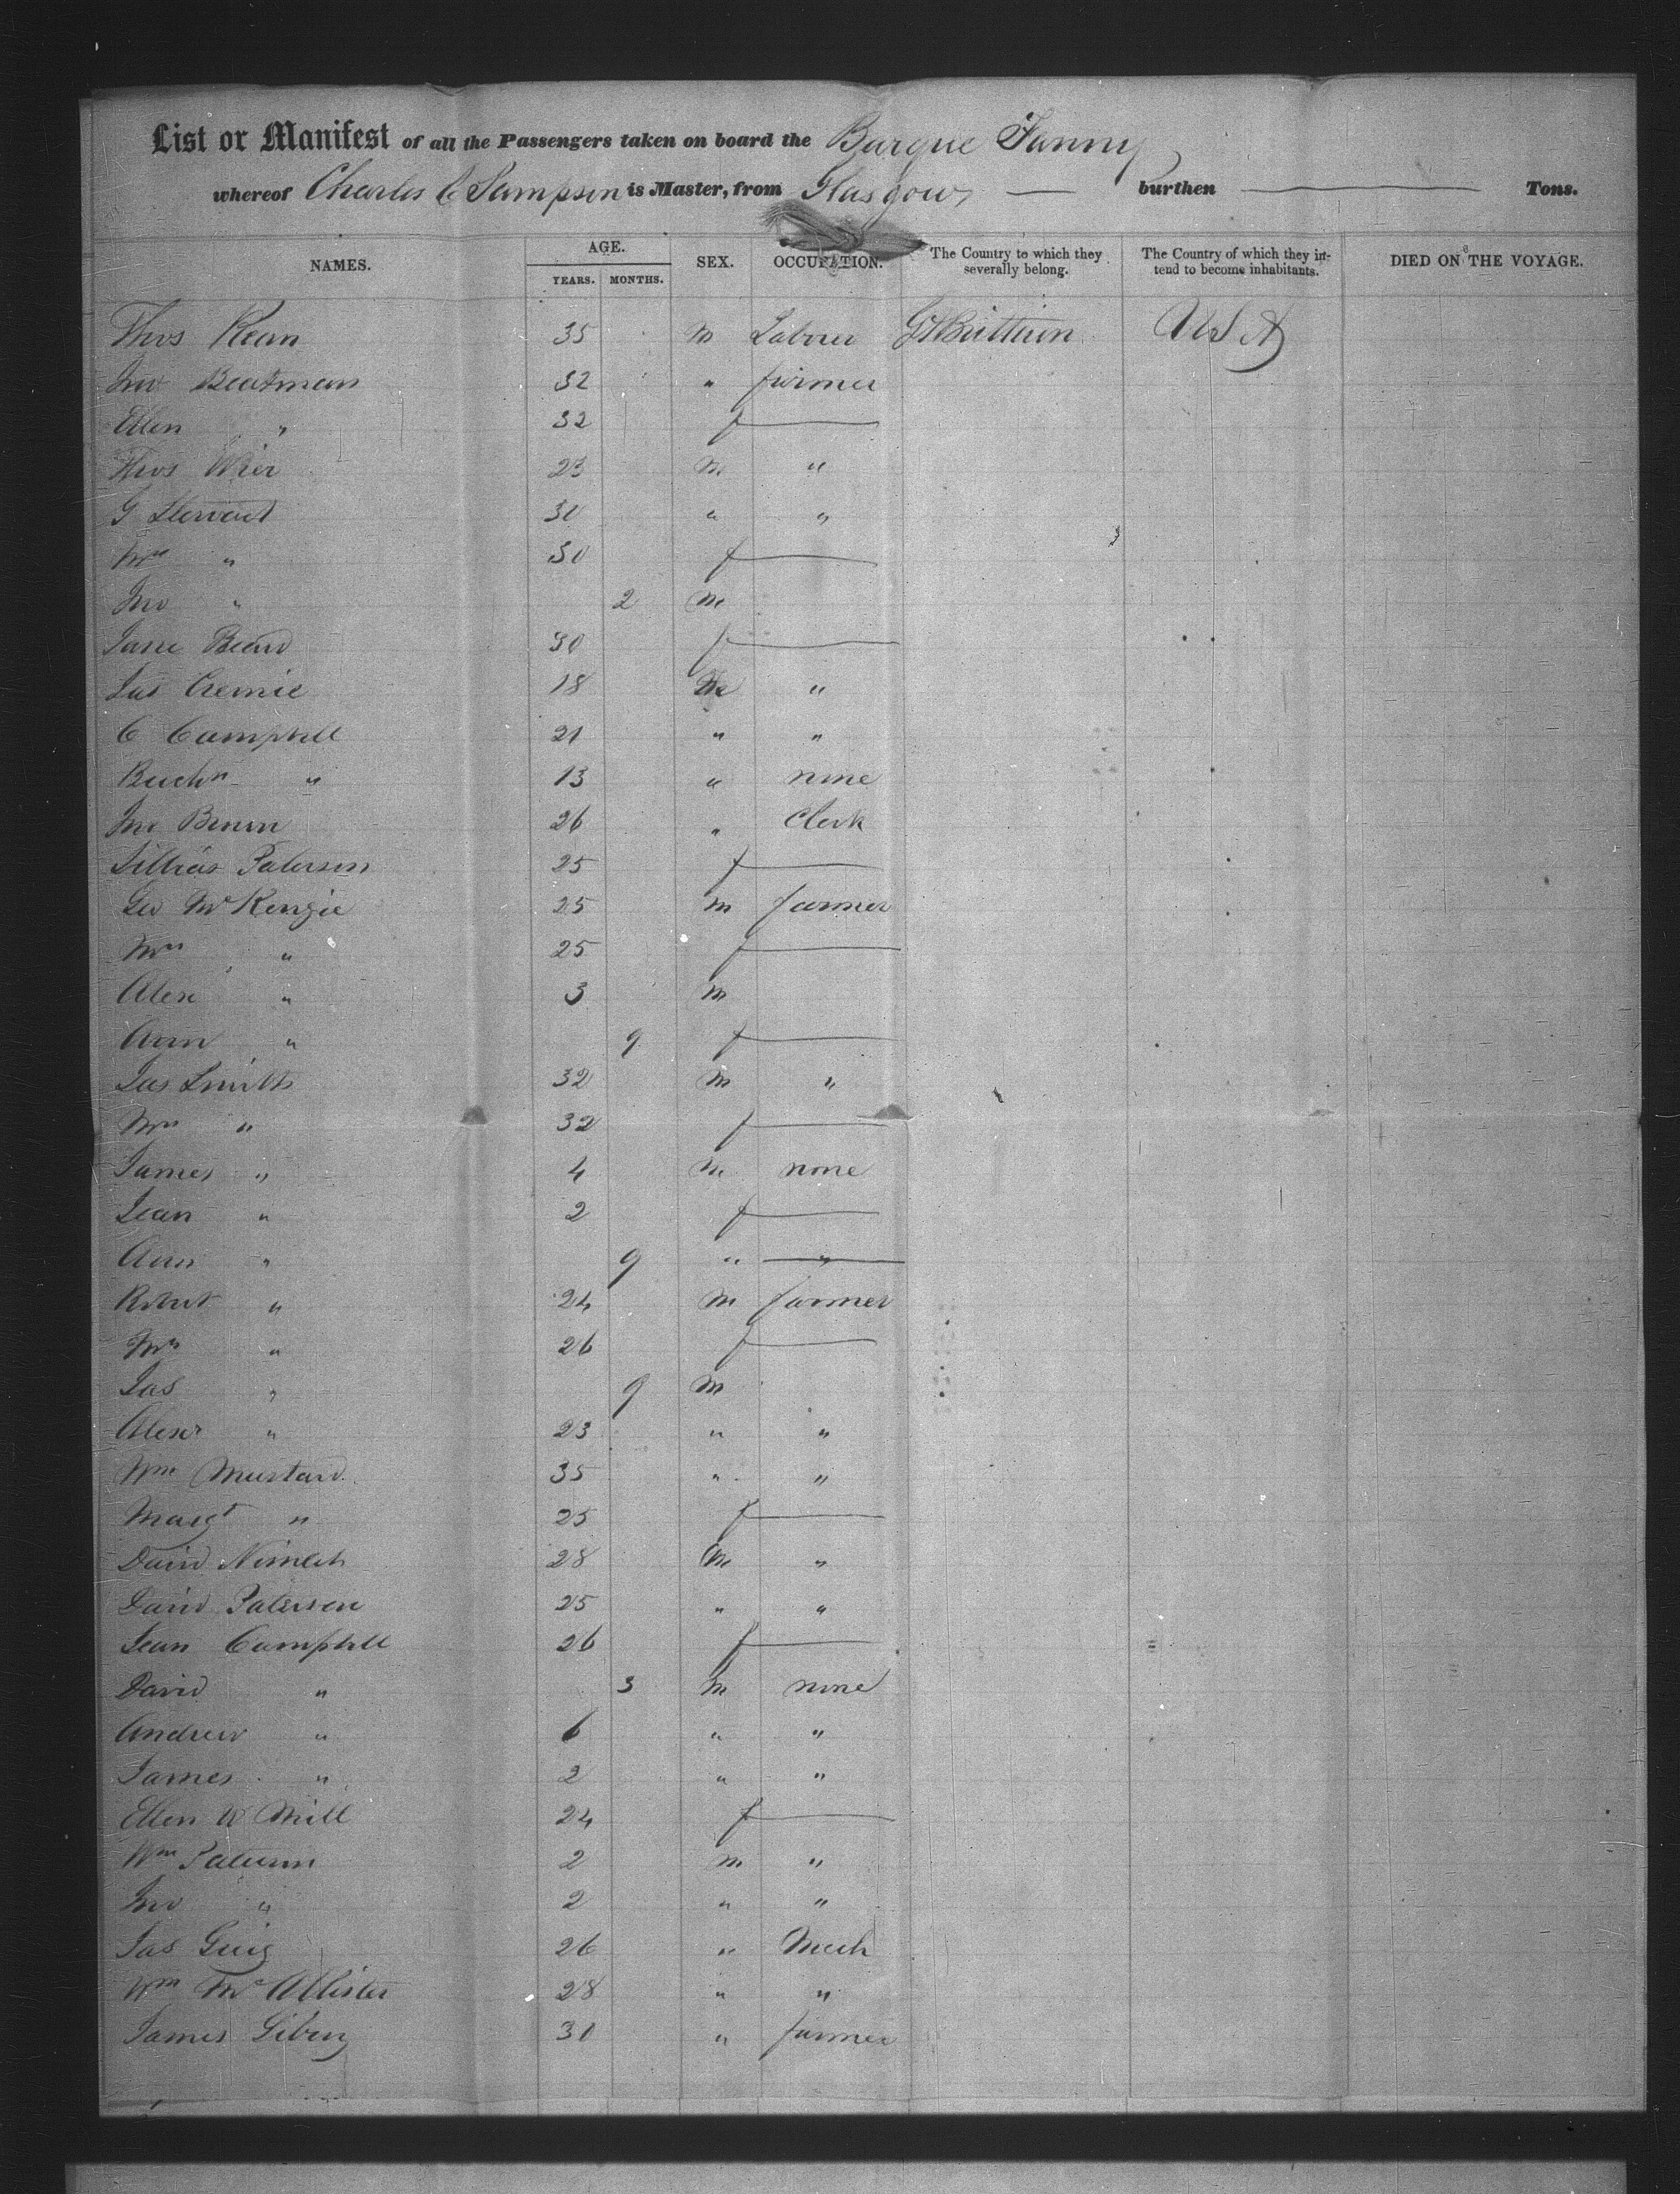 List or Manifest of all the Passengers taken on board the Barque Fanny
whereof Charles C Sampson is Master, from Glasgow, — burthen — Tons.
NAMES. AGE. YEARS. MONTHS. SEX. OCCUPATION. The Country to which they severally belong. The Country of which they intend to become inhabitants. DIED ON THE VOYAGE.
Thos Kean 35 m Laborer Gt Brittian USA
Jno Boatman 32 " farmer
Ellen " 32 f —
Thos Wier 23 m "
G Stewart 30 " "
Mrs " 30 f —
Jno " 2 m
Jane Beard 30 f —
Jas 18 m "
C Campbell 21 " "
Buchn " 13 " none
Jno Brown 26 " Clerk
Lillias Paterson 25 f —
Geo McKenzie 25 m farmer
Mrs " 25 f —
Alex " 3 m
Ann " 9 f —
Jas Smith 32 m "
Mrs " 32 f —
James " 4 m none
Jean " 2 f —
Ann " 9 " — " —
Robert " 24 m farmer
Mrs " 26 f —
Jas " 9 m
Alexr " 23 " "
Wm Mustard 35 " "
Margt " 25 f —
David 28 m "
David Paterson 25 " "
Jean Campbell 26 f —
David " 3 m none
Andrew " 6 " "
James " 2 " "
Ellen W Mill 24 f —
Wm Paterson 2 m "
Jno " 2 " "
Jas Greig 26 " Mech
Wm McAllister 28 " "
James 30 " farmer